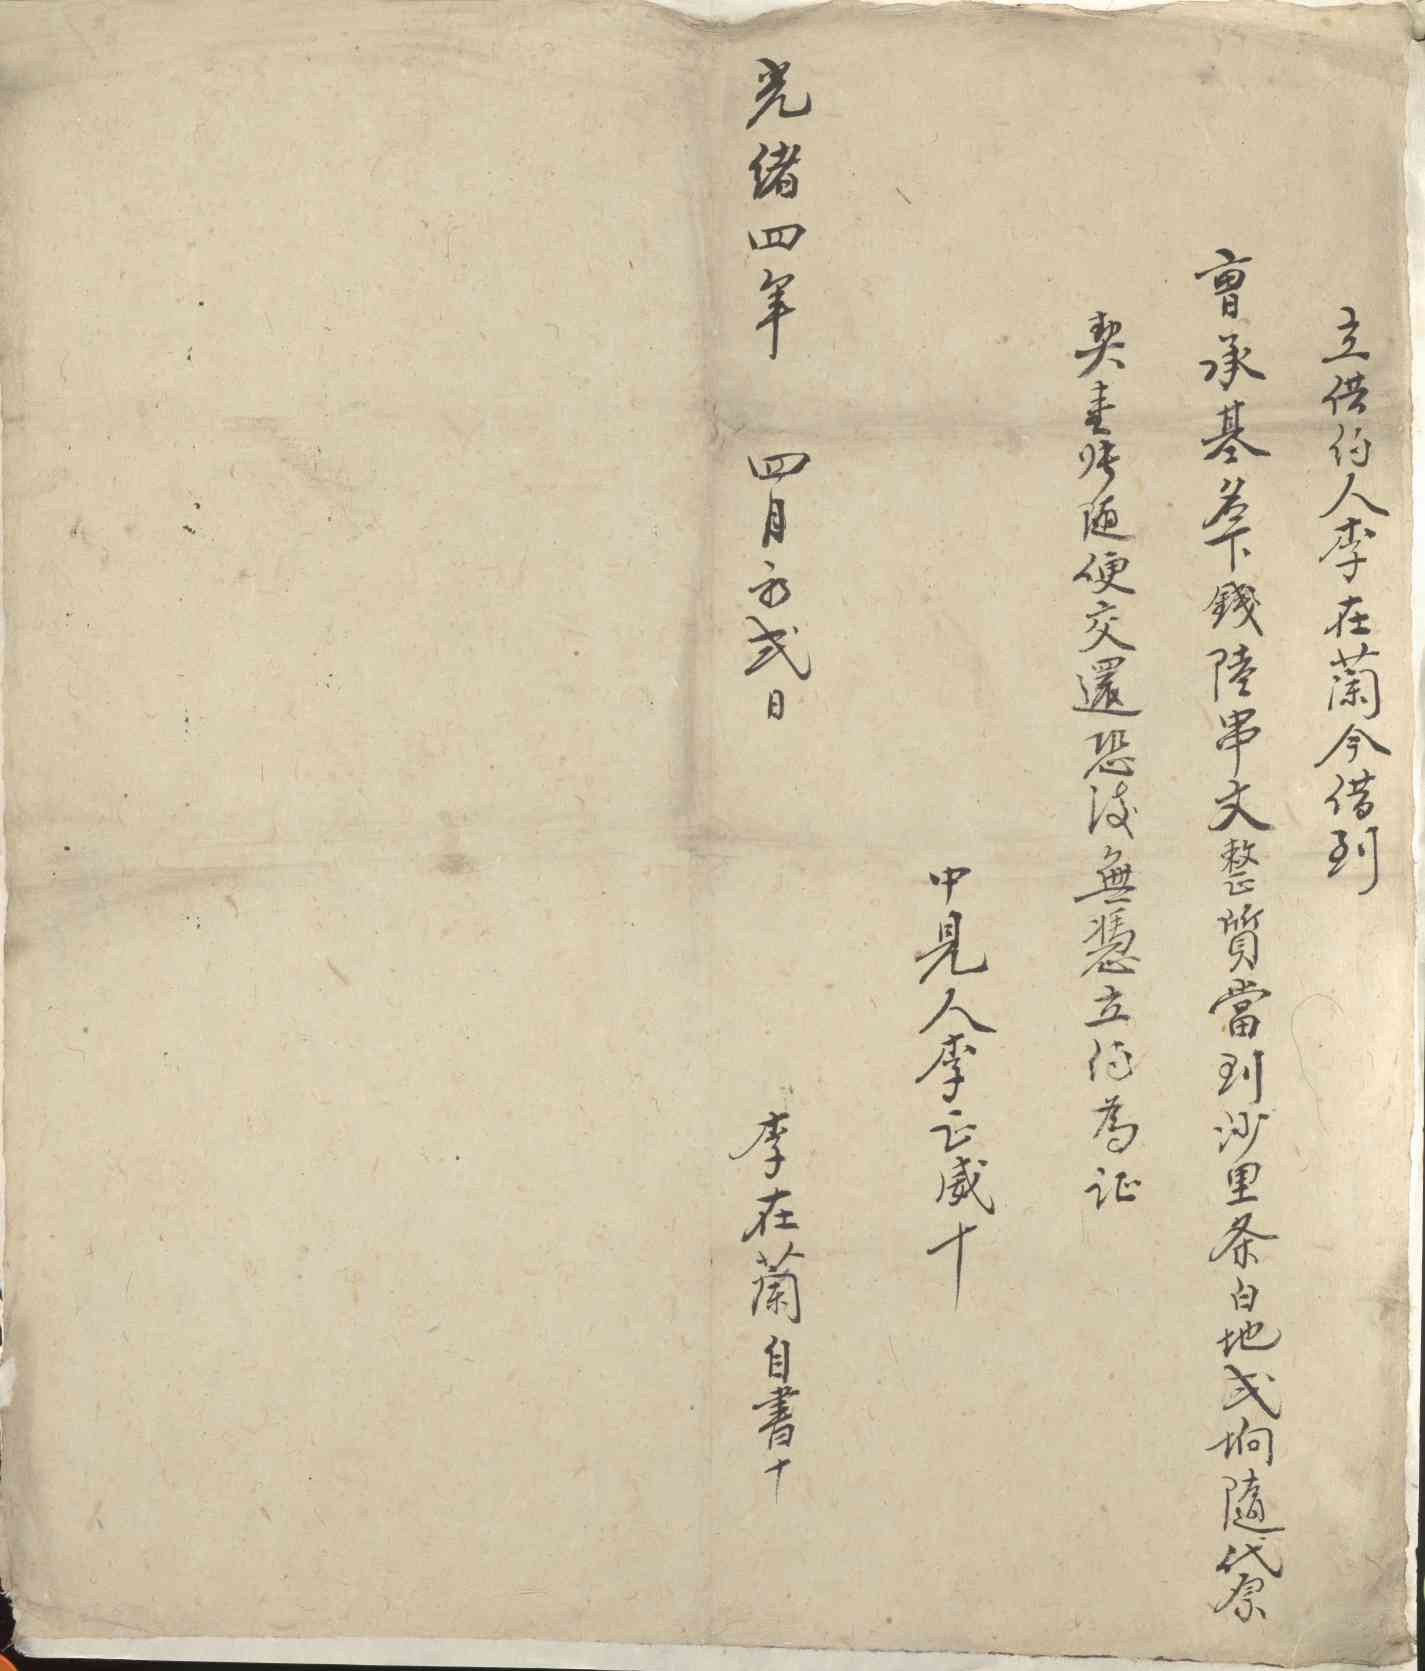 立供约人李在蘭今借到
曹承基名下錢陸串文整質當到沙里条白地弍坰隨袋原
契壹张随便交還恐後無憑立约為证
中見人李正威十
光绪四年 四月初弍日 李在蘭自書十